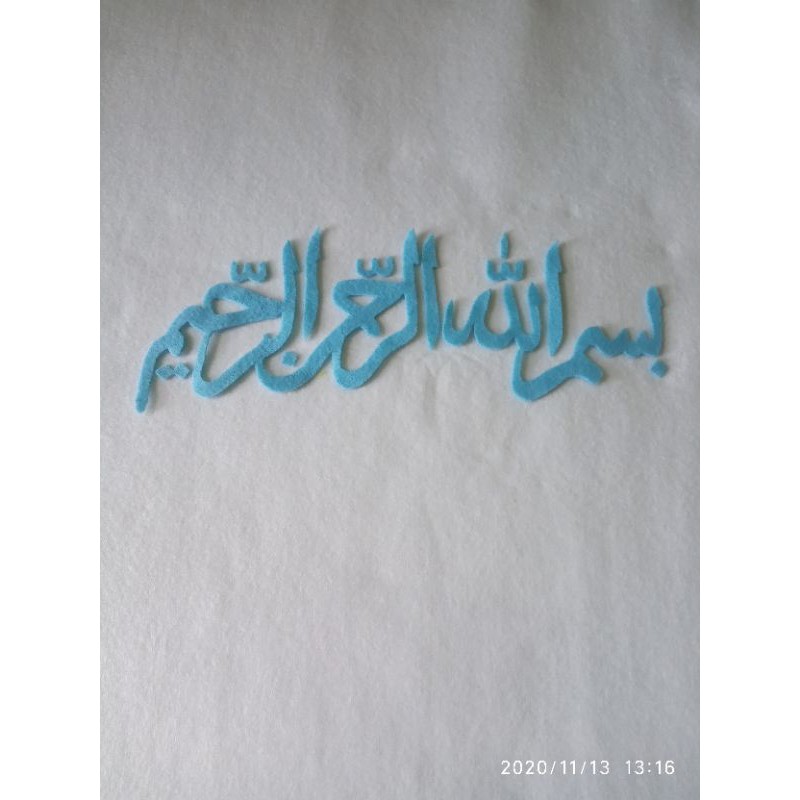 بسم الله الرحمن الرحيم
2020/11/13 13:16